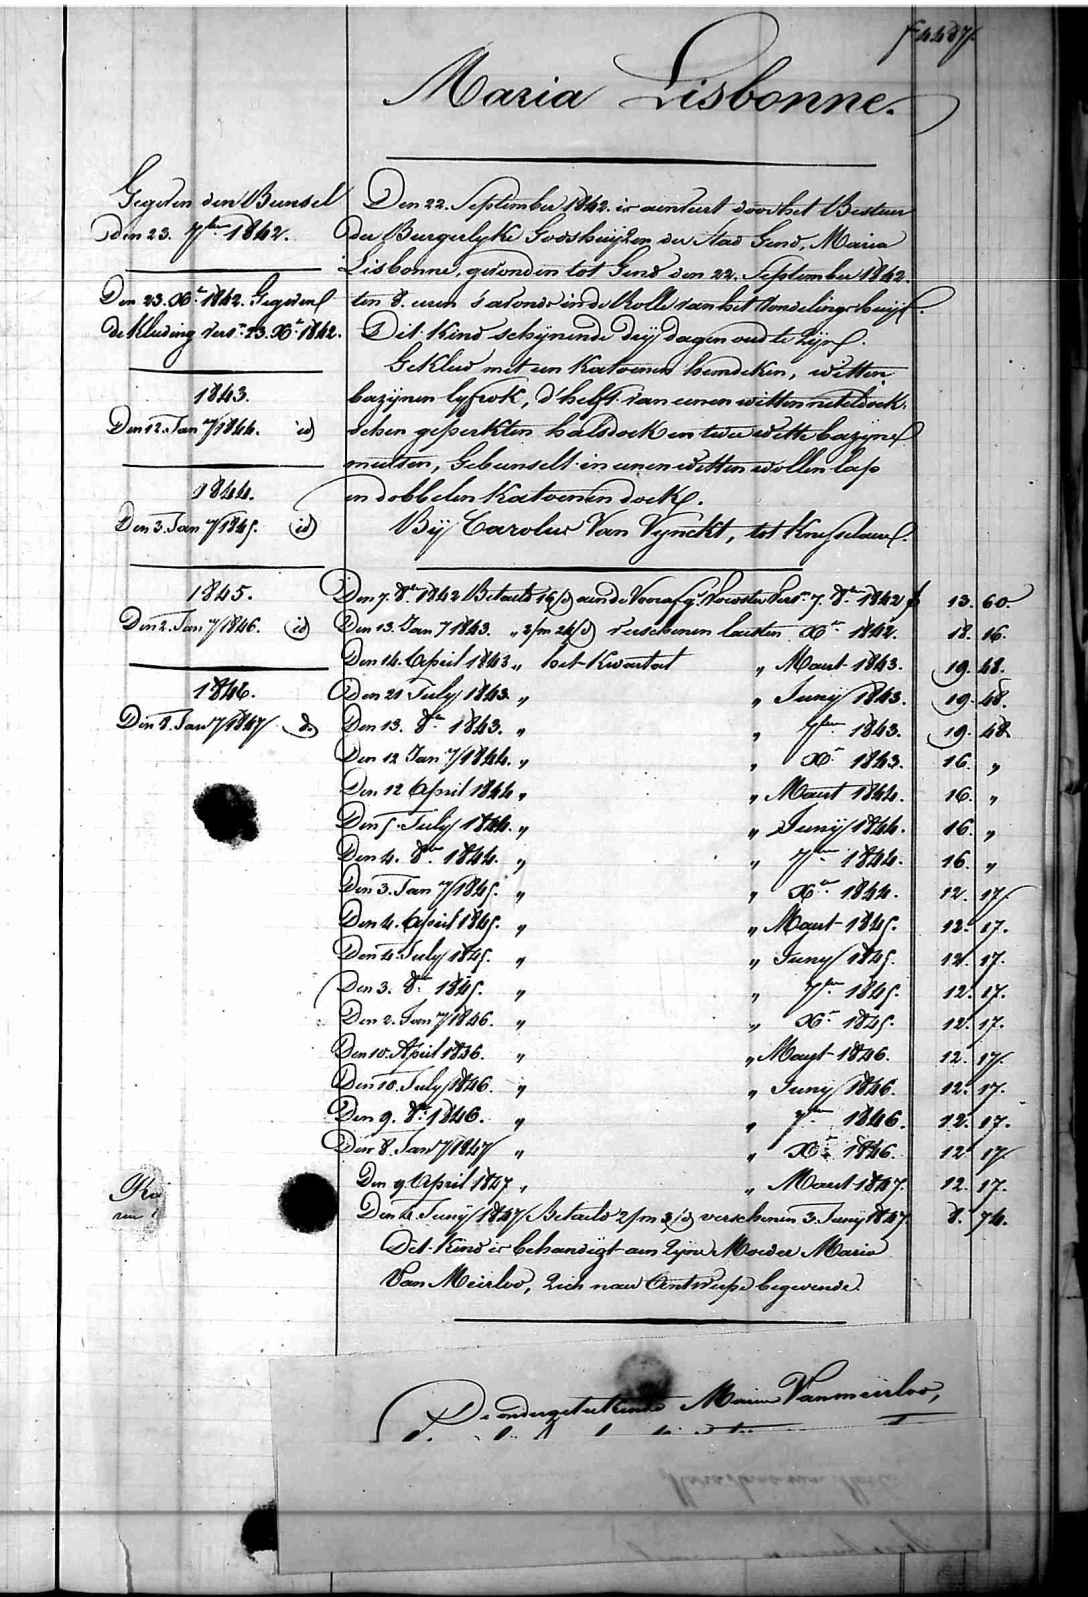 Maria Lisbonne.
Gegeven den Bunsel
den 23. 7ber 1842.
Den 23. Xr 1842. Gegeven
de Kleeding vers. 23. Xr 1842.
1843.
Den 12. Jan 7/1844. id
1844.
Den 3. Jan 7/1845. id
1845.
Den 2. Jan 7/1846. id
1846.
Den 8. Jan 7/1847 do
Den 22. September 1842. is aenveert door het Bestuur
der Burgerlyke Godshuijzen der Stad Gend, Maria
Lisbonne, gevonden tot Gend den 22. September 1842.
ten 8. uren s'avonds in de Rolle van het Vondelingshuijs.
Dit Kind schynende drij dagen oud te zijn.
Gekleed met een Katoenen hemdeken, witten
bazijnen lyfrok, d'helft van eenen witten neteldoek-
schen geperkten halsdoek en twee witte bazijne
mutsen, Gebunselt in eenen witten wollen lap
en dobbelen Katoenen doek.
Bij Carolus Van Vynckt, tot Knesselaere.
Den 7. 8er 1842 Betaeld 16/d aen de Voorafg. Voedster Vers. 7. 8er 1842 f 13. 60.
Den 13. Jan 7 1843. " 3/m 24/d verschenen laesten Xr 1842. 18. 16.
Den 14. April 1843 " het Kwartael " Maert 1843. 19. 48.
Den 21 July 1843. " " Junij 1843. 19. 48.
Den 13. 8er 1843. " " 7ber 1843. 19. 48.
Den 12 Jan 7/1844. " " Xr 1843. 16. "
Den 12 April 1844 " " Maert 1844. 16. "
Den 5. July 1844. " " Junij 1844. 16. "
Den 4. 8er 1844. " " 7ber 1844. 16. "
Den 3. Jan 7/1845. " " Xer 1844. 12. 17.
Den 4. April 1845. " " Maert 1845. 12. 17.
Den 4. July 1845. " " Juny 1845. 12. 17.
Den 3. 8er 1845. " " 7ber 1845. 12. 17.
Den 2. Jan 7/1846. " " Xr 1845. 12. 17.
Den 10. April 1846. " " Maert 1846. 12. 17.
Den 10. July 1846. " " Junij 1846. 12. 17.
Den 9. 8er 1846. " " 7ber 1846. 12. 17.
Den 8. Jan 7/1847 " " Xr 1846. 12. 17
Den 9 April 1847. " " Maert 1847. 12. 17.
Den 4. Junij 1847 Betaeld 2/m 3/d verschenen 3. Junij 1847 8. 74.
Dit Kind is behandigt aen zijne Moeder Maria
Van Meirloo, zich naer Antwerpe begevende.
De ondergeteekende Maria Vanmeirloo,